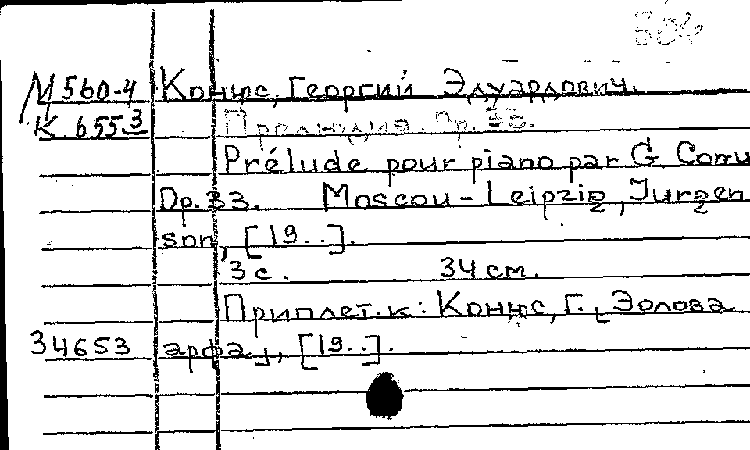 М560-4 Конюс, Георгий Эдуардович.
К 6553 Прелюдия. Ор. 33.
Prélude pour piano par G. Conu
Op. 33. Moscou – Leipzig, Jurgen
son, [19..].
3 с. 34 см.
Приплет. к: Конюс, Г. [Эолова
34653 арфа], [19..].